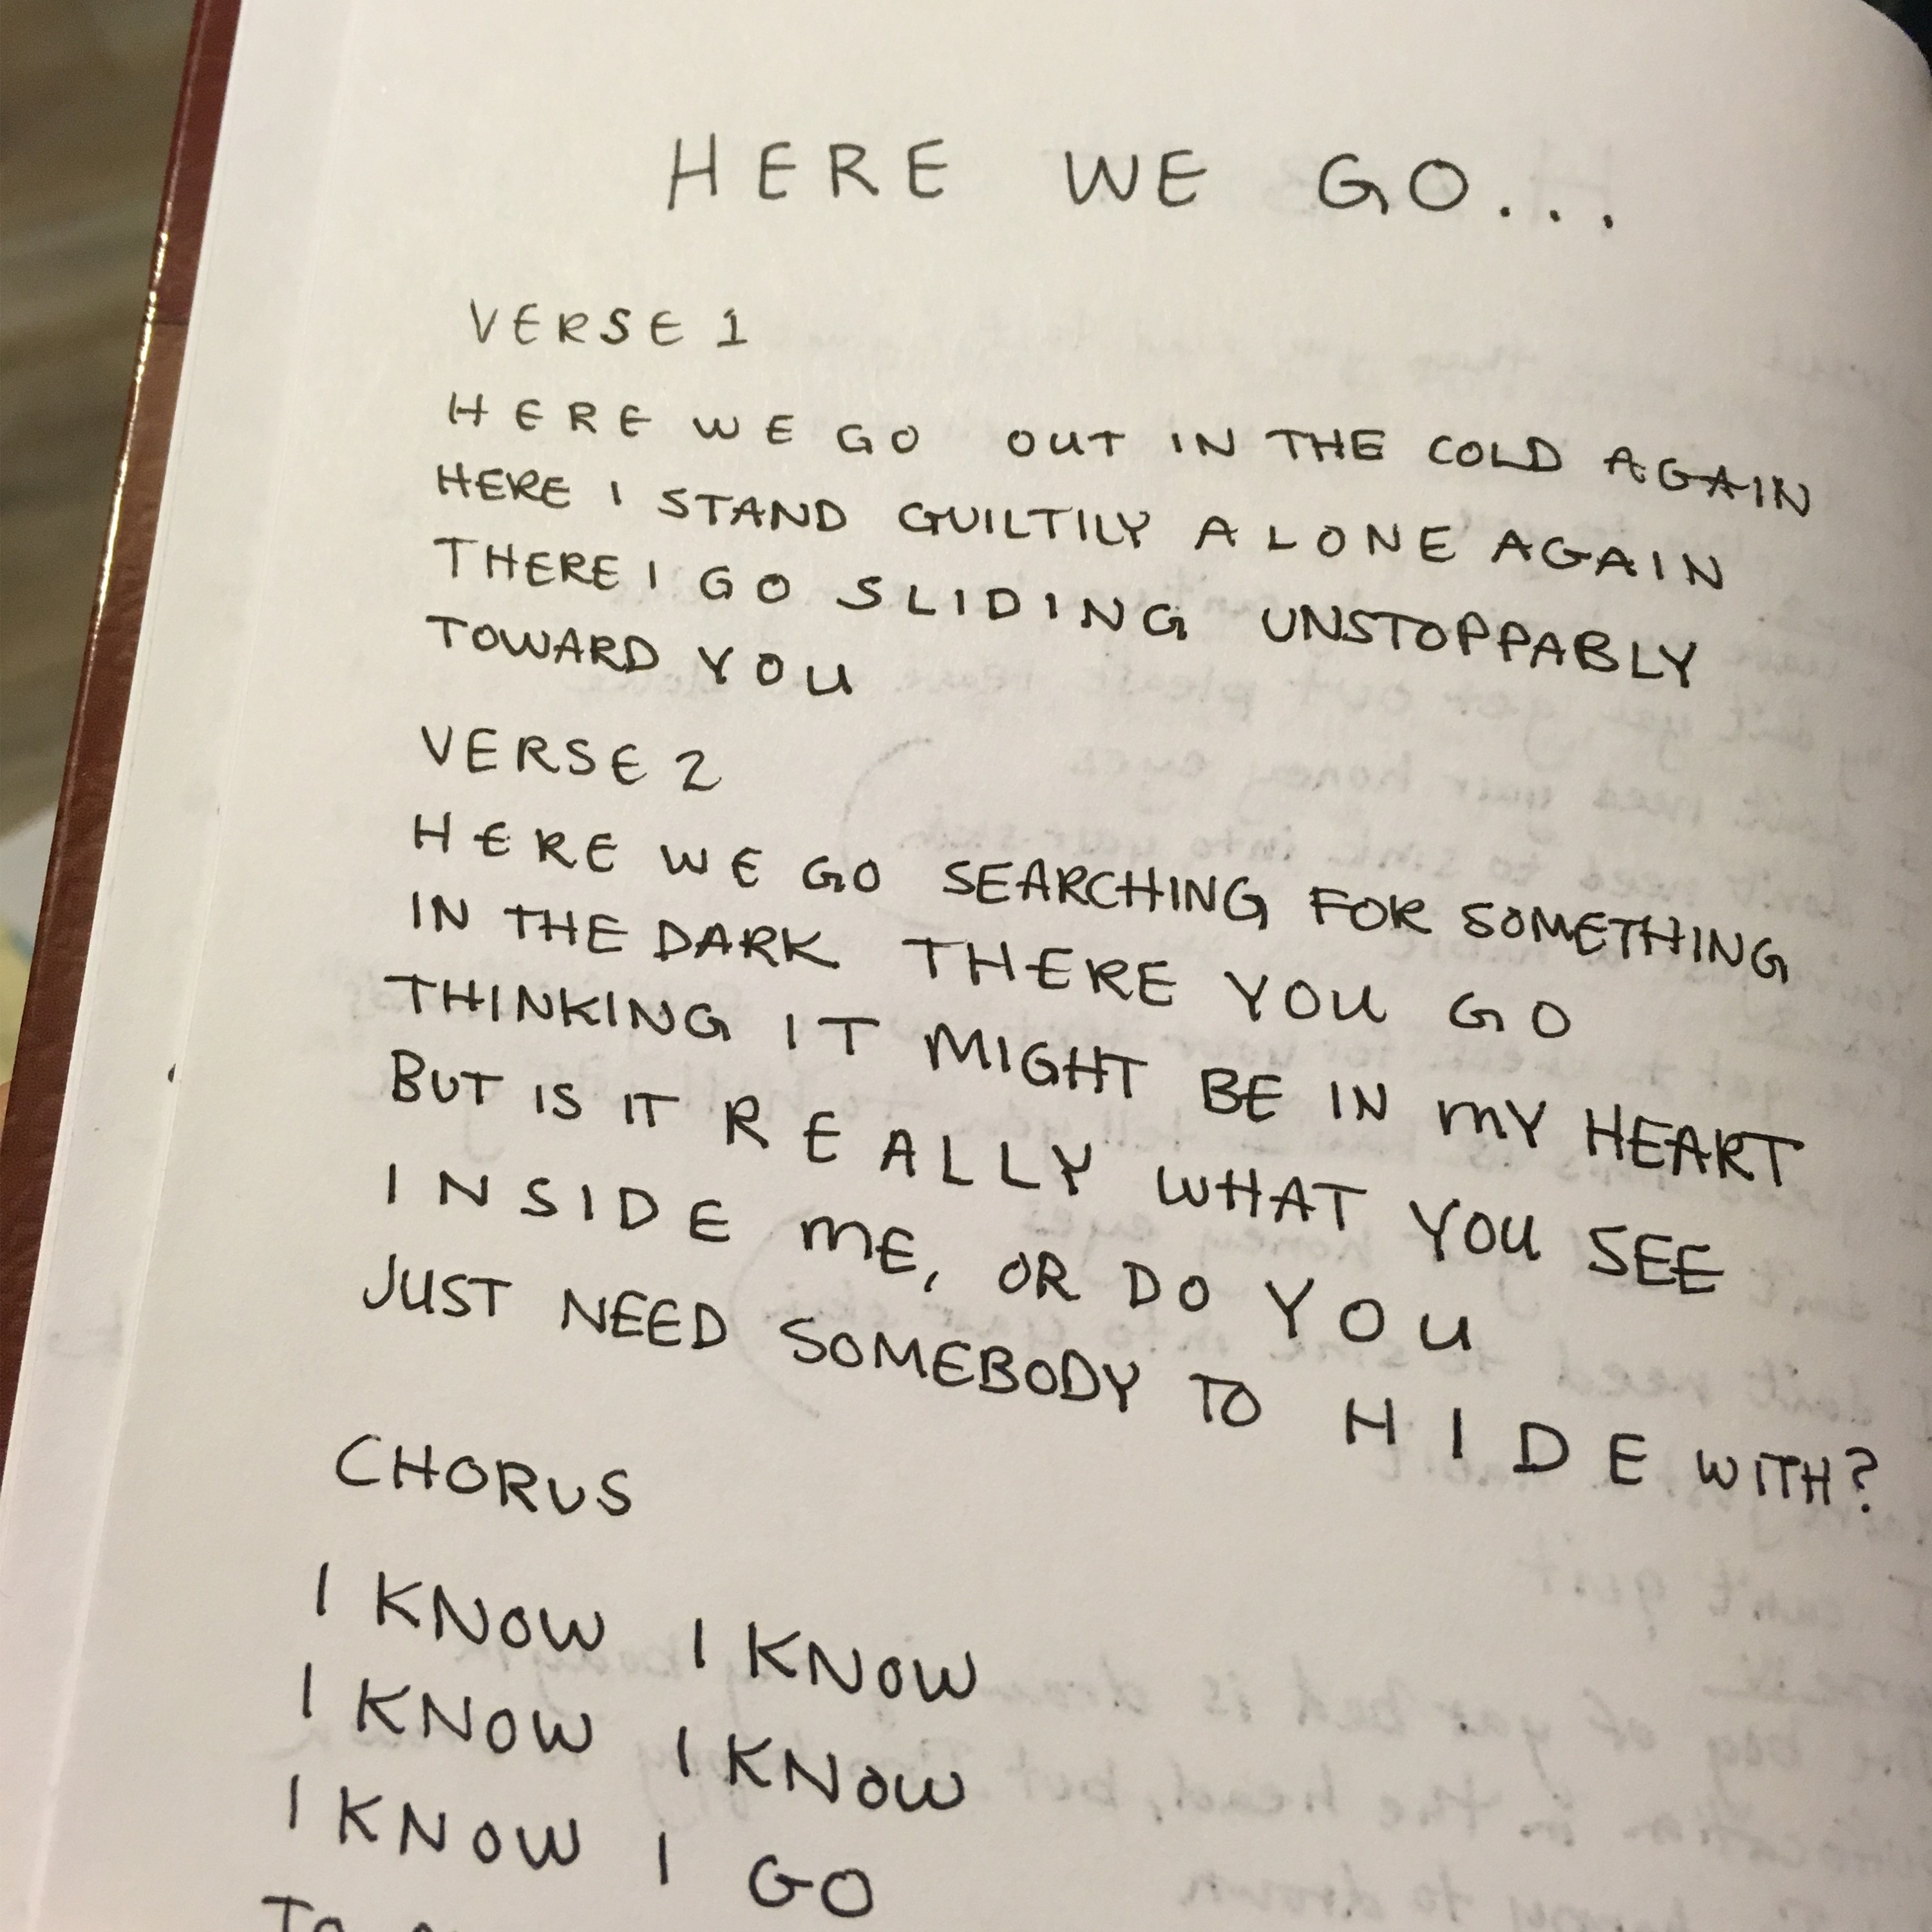 HERE WE GO...
VERSE 1
HERE WE GO OUT IN THE COLD AGAIN
HERE I STAND GUILTILY ALONE AGAIN
THERE I GO SLIDING UNSTOPPABLY
TOWARD YOU
VERSE 2
HERE WE GO SEARCHING FOR SOMETHING
IN THE DARK THERE YOU GO
THINKING IT MIGHT BE IN MY HEART
BUT IS IT REALLY WHAT YOU SEE
INSIDE ME, OR DO YOU
JUST NEED SOMEBODY TO HIDE WITH?
CHORUS
I KNOW I KNOW
I KNOW I KNOW
I KNOW I GO
TO